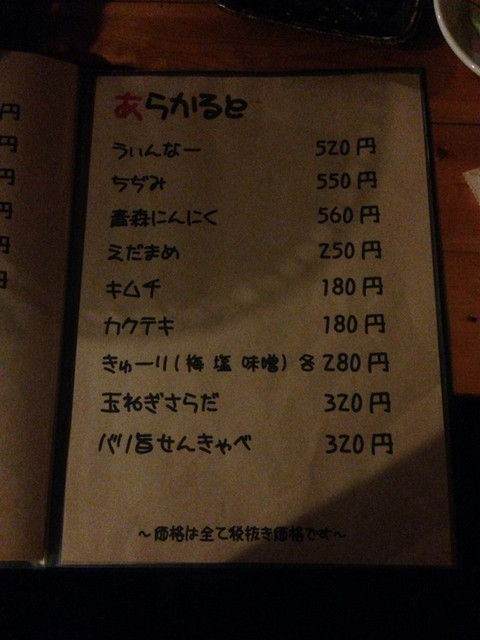 あらかると
うぃんなー 520円
ちぢみ 550円
青森にんにく 560円
えだまめ 250円
キムチ 180円
カクテキ 180円
きゅーり(梅 塩 味噌) 各280円
玉ねぎさらだ 320円
バリ旨せんきゃべ 320円
～価格は全て税抜き価格です～
円
円
円
円
円
円